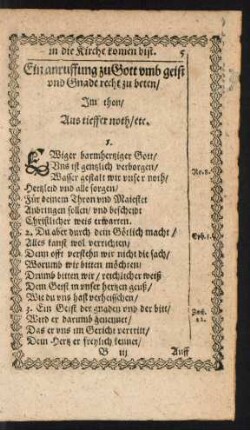 in die Kirche komen bist. 5
Ein anruffung zu Gott vmb geist
vnd Gnade recht zu beten/
Im thon/
Aus tieffer noth/etc.
1.
EWiger barmhertziger Gott/
Vns ist gentzlich verborgen/
Waßer gestalt wir vnser noth/
Hertzleid vnd alle sorgen/
Für deinem Thron vnd Maiestet
Anbringen sollen/ vnd bescheidt
Christlicher weis erwarten.
2. Du aber durch dein Götlich macht/
Alles kanst wol verrichten/
Denn offt verstehn wir nicht die sach/
Worumb wir bitten möchten/
Drumb bitten wir/ rechtlicher weiß
Dein Geist in vnser hertzen geuß/
Wie du vns hast verheisschen/
3. Ein Geist der gnaden vnd der bitt/
Wird er darumb genennet/
Das er vns im Gericht vertritt/
Dem Hertz er freylich kennet/
B iij Auff
Ro. 8.
Eph. 3.
Zach.
12.